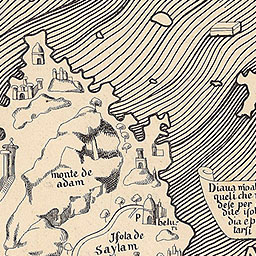 monte de
adam
P
belus
Isola de
Saylam
Diaua moal
queli che
dese per
dite isol
dia e p
tarsi